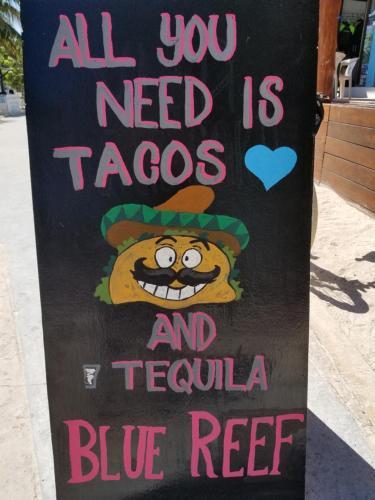 ALL YOU
NEED IS
TACOS
AND
TEQUILA
BLUE REEF